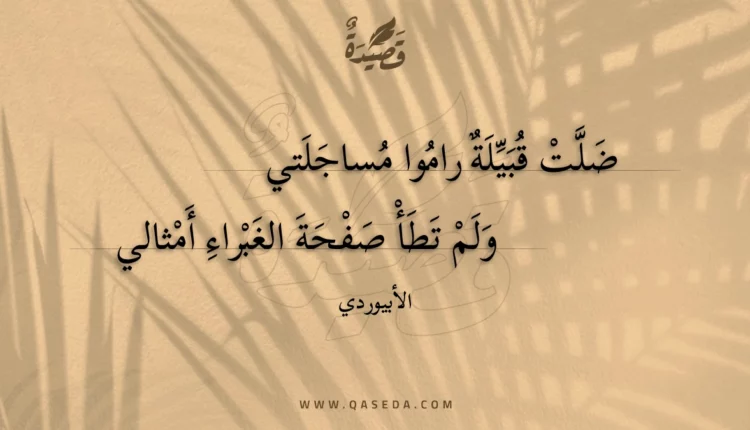 قَصِيْدَةٌ
ضَلَّتْ قُبَيِّلَةٌ رامُوا مُساجَلَتي
وَلَمْ تَطَأْ صَفْحَةَ الغَبْراءِ أَمْثالي
الأبيوردي
WWW.QASEDA.COM